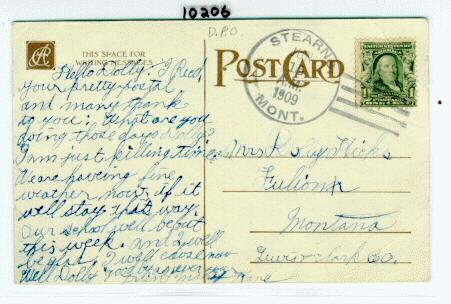 10206
D.P.O
THIS SPACE FOR
WRITING MESSAGES
POST CARD
STEARN
1909
MONT.
Hello Dolly: I Recd
your pretty postal
and many thank
to you: What are you
doing those days Dolly?
I am just killing time
We are haveing fine
weather now, if it
will stay that way.
Our school will be out
this week. and I will
be glad. I will close now
Well Dolly good bye
Mrs Roby Hicks
Montana
Lewis & Clark Co.